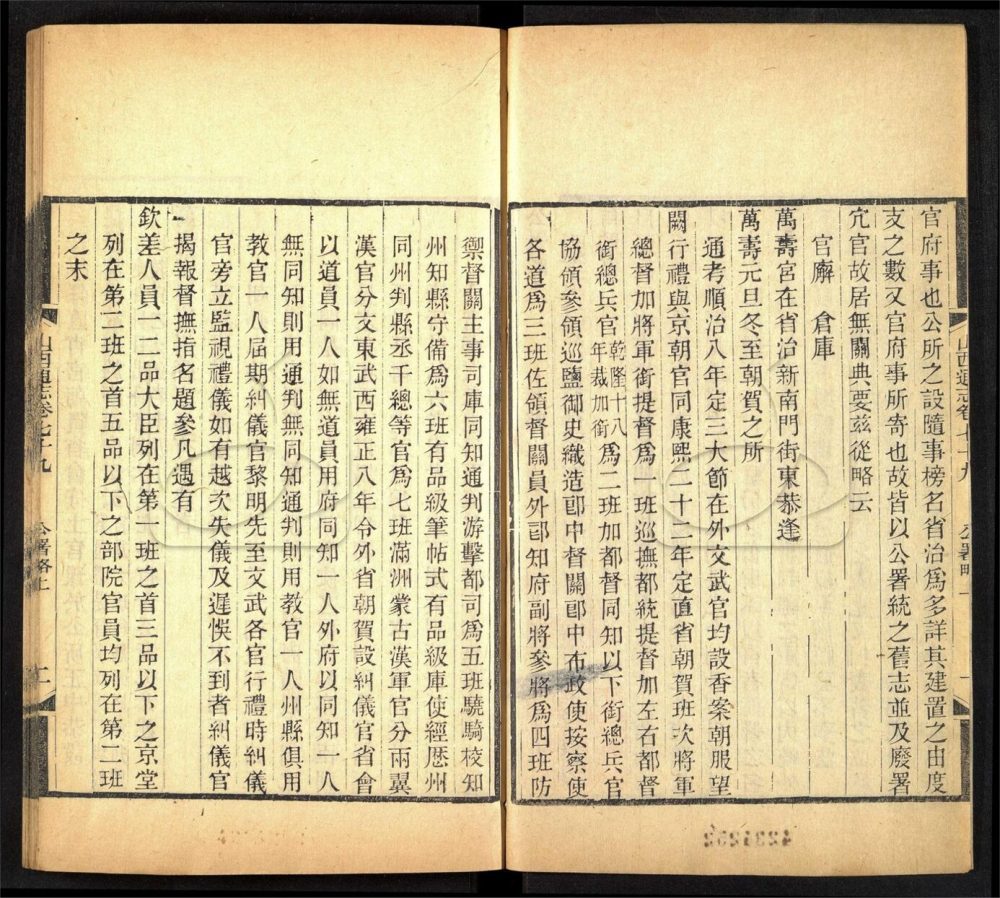 官府事也公所之設隨事榜名省治爲多詳其建置之由度
支之數又官府事所寄也故皆以公署統之舊志並及廢署
宂官故居無關典要茲從略云
官廨　倉庫
萬壽宮在省治新南門街東恭逢
萬壽元旦冬至朝賀之所
通考順治八年定三大節在外文武官均設香案朝服望
闕行禮與京朝官同康熙二十二年定直省朝賀班次將軍
總督加將軍銜提督爲一班巡撫都統提督加左右都督
銜總兵官乾隆十八年裁加銜爲二班加都督同知以下銜總兵官
協領參領巡鹽御史織造郎中督關郎中布政使按察使
各道爲三班佐領督關員外郎知府副將參將爲四班防
山西通志卷七十九　公署略上
禦督關主事司庫同知通判游擊都司爲五班驍騎校知
州知縣守備爲六班有品級筆帖式有品級庫使經歷州
同州判縣丞千總等官爲七班滿洲蒙古漢軍官分兩翼
漢官分文東武西雍正八年令外省朝賀設糾儀官省會
以道員一人如無道員用府同知一人外府以同知一人
無同知則用通判無同知通判則用教官一人州縣俱用
教官一人屆期糾儀官黎明先至文武各官行禮時糾儀
官旁立監視禮儀如有越次失儀及遲悞不到者糾儀官
揭報督撫指名題參凡遇有
欽差人員一二品大臣列在第一班之首三品以下之京堂
列在第二班之首五品以下之部院官員均列在第二班
之末
山西通志卷七十九　公署略上
4231252